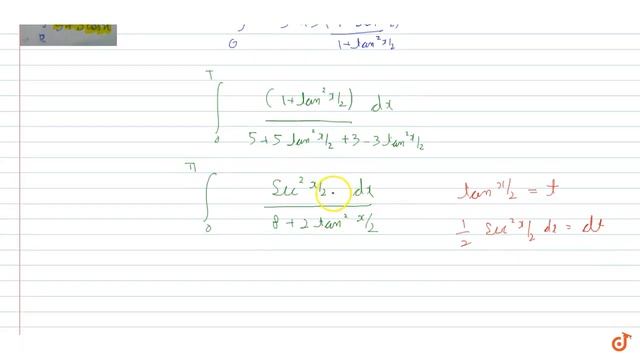 1+tan²x/2
π
∫ (1+tan²x/2) dx
0 5+5tan²x/2+3-3tan²x/2
π
∫ Sec²x/2 · dx
0 8+2tan²x/2
tan x/2 = t
1/2 Sec²x/2 dx = dt